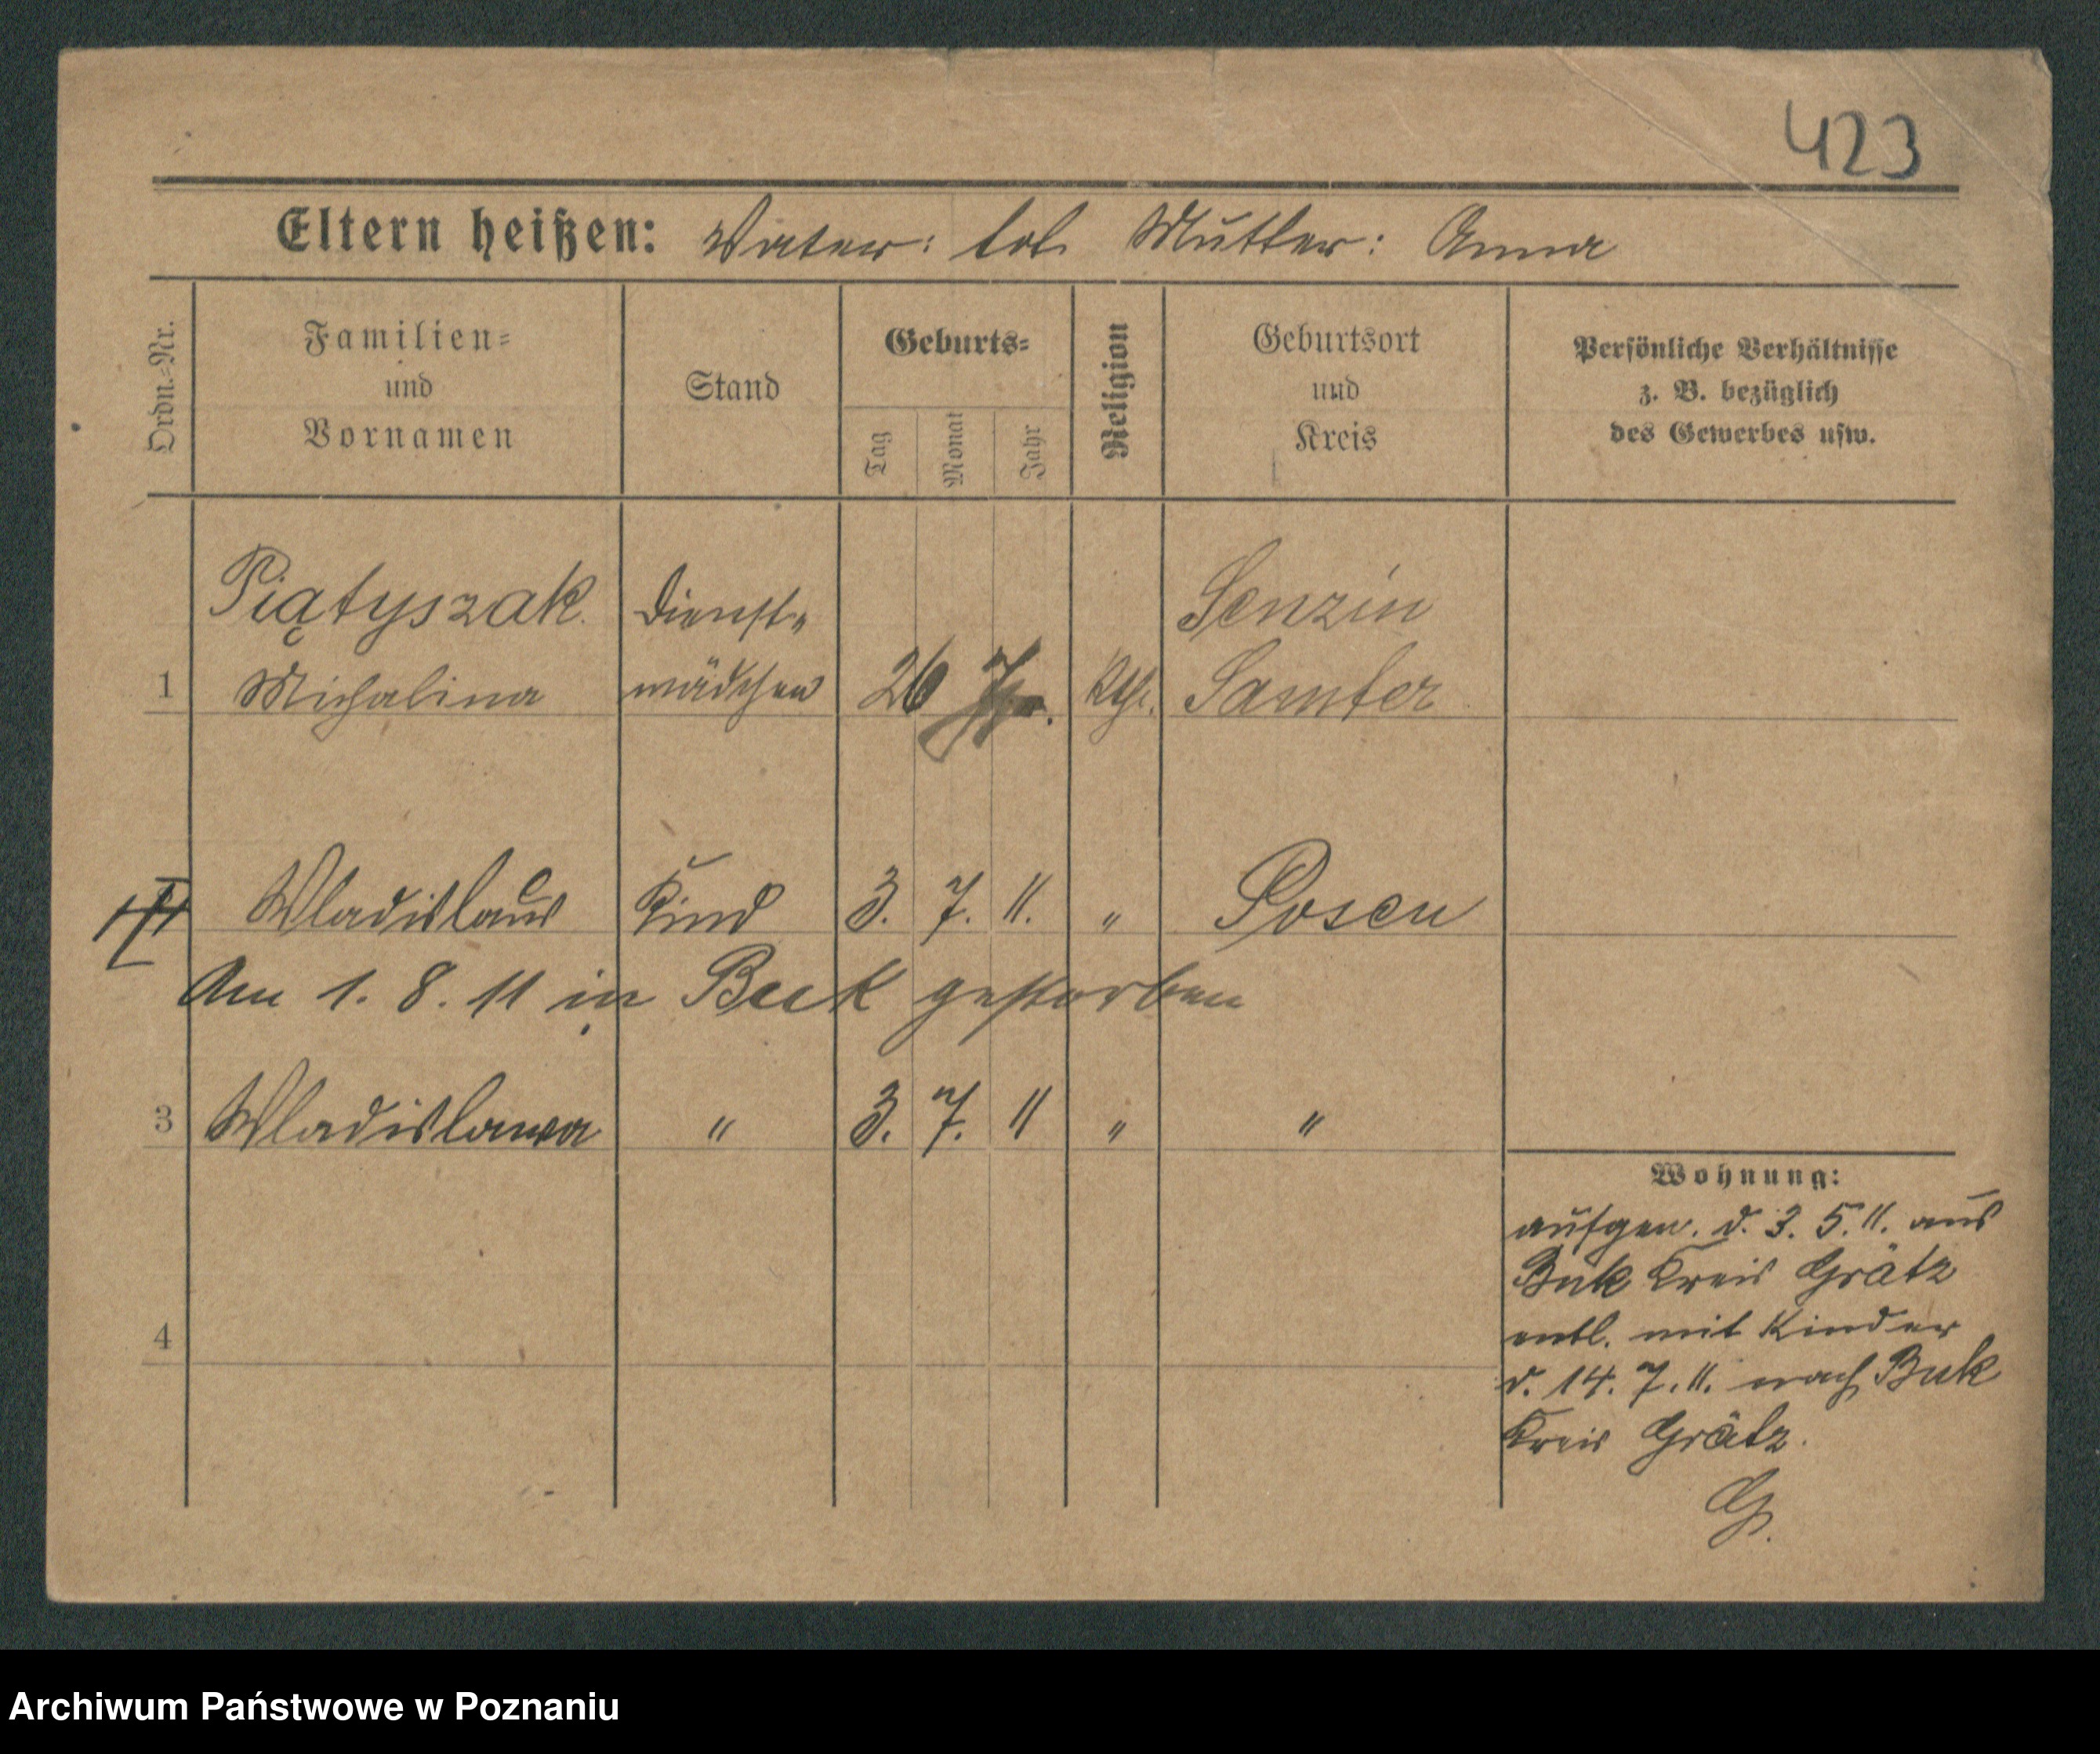 423
Eltern heißen: Vater: tot Mutter: Anna
Ordn.=Nr.
Familien=
und
Vornamen
Stand
Geburts=
Tag
Monat
Jahr
Religion
Geburtsort
und
Kreis
Persönliche Verhältnisse
z. B. bezüglich
des Gewerbes usw.
Piątyszak Dienst„ Senzin
1 Michalina mädchen 26 Kth. Samter
Wladislaus Kind 3. 7. 11. „ Posen
Am 1. 8. 11 in Buk gestorben
3 Wladislawa " 3. 7. 11 „ "
4
Wohnung:
aufgen. d. 3. 5. 11. aus
Buk Kreis Grätz
entl. mit Kinder
d. 14. 7. 11. nach Buk
Kreis Grätz.
G.
Archiwum Państwowe w Poznaniu